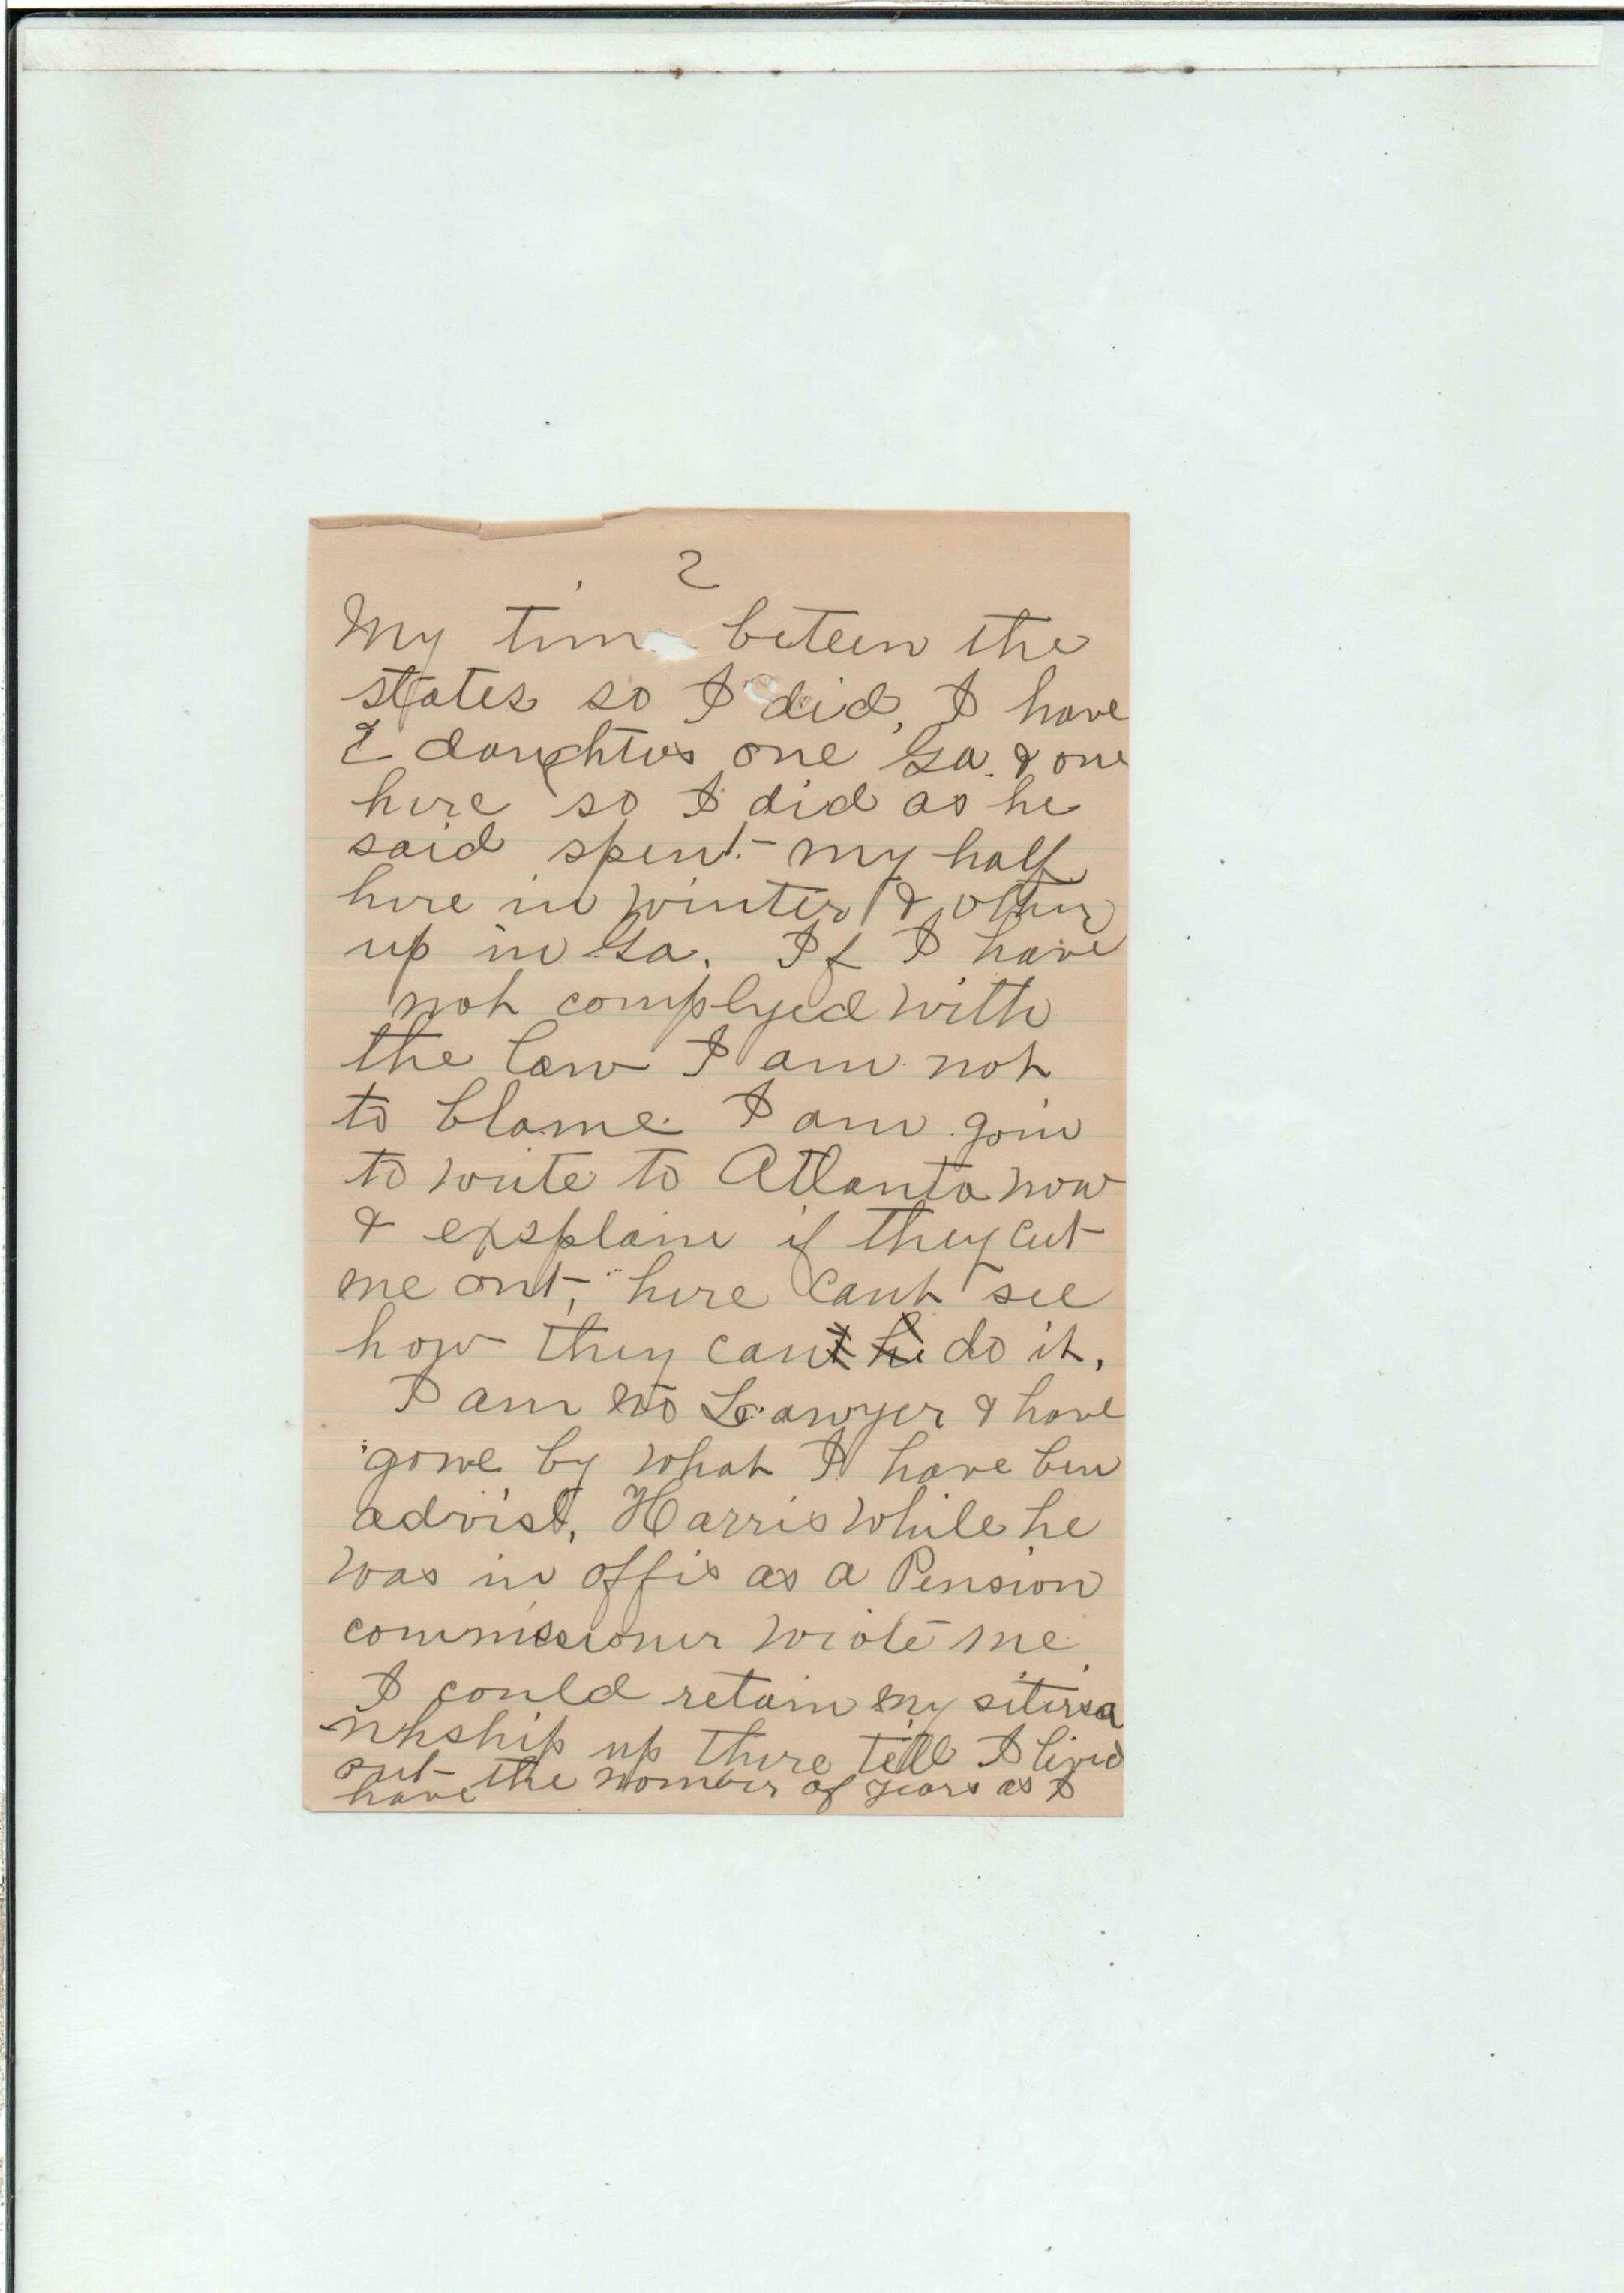 2
My tim beteen the
states so I did, I have
2 daughters one Ga. & one
here so I did as he
said spent my half
here in winter & other
up in Ga. If I have
not complyed with
the law I am not
to blame. I am goin
to write to Atlanta now
& exsplain if they cut
me out, here cant see
how they can do it,
I am no Lawyer & have
gone by what I have ben
advist, Harris while he
was in offis as a Pension
commissioner wrote me
I could retain my sitirsa
nhship up there till I lived
out the nomber of years as I
have